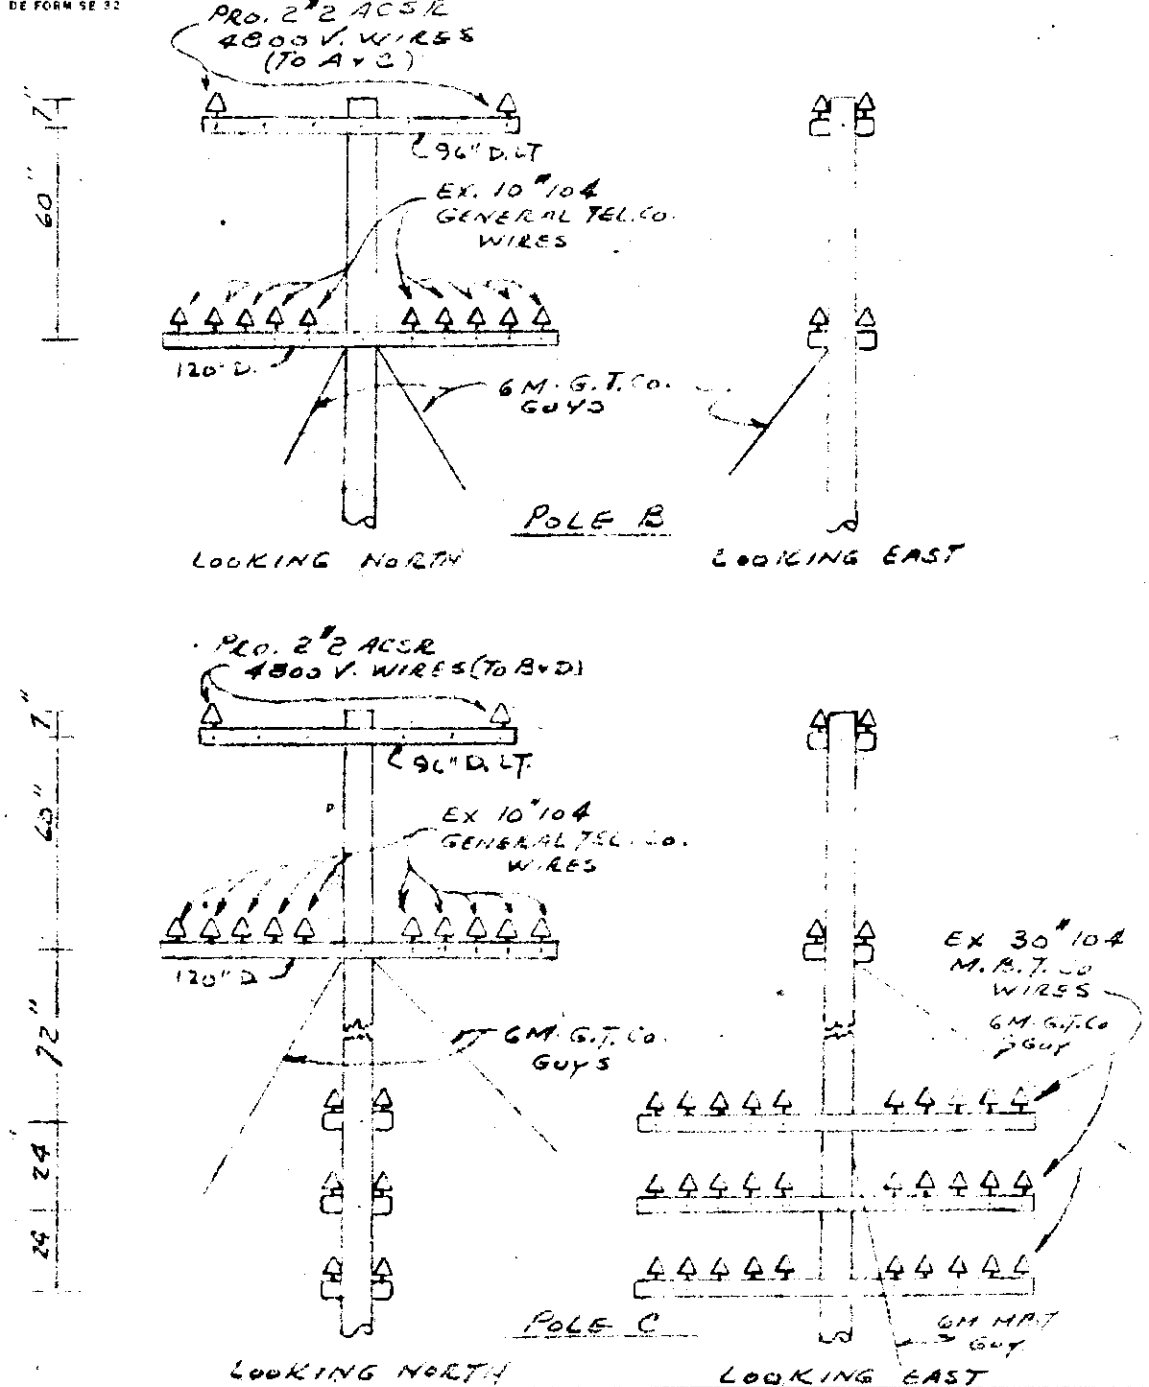 DE FORM SE 32
PRO. 2#2 ACSR
4800 V. WIRES
(TO A & C)
7"
60"
96" D. LT
EX. 10#104
GENERAL TEL. CO.
WIRES
120" D.
6 M. G.T. CO.
GUYS
POLE B
LOOKING NORTH
LOOKING EAST
PRO. 2#2 ACSR
4800 V. WIRES (TO B & D)
7"
60"
96" D. LT.
EX 10#104
GENERAL TEL. CO.
WIRES
120" D
72"
6M. G.T. CO.
GUYS
EX 30#104
M.B.T. CO
WIRES
6M. G.T. CO
GUY
24
24
POLE C
6M MBT
GUY
LOOKING NORTH
LOOKING EAST